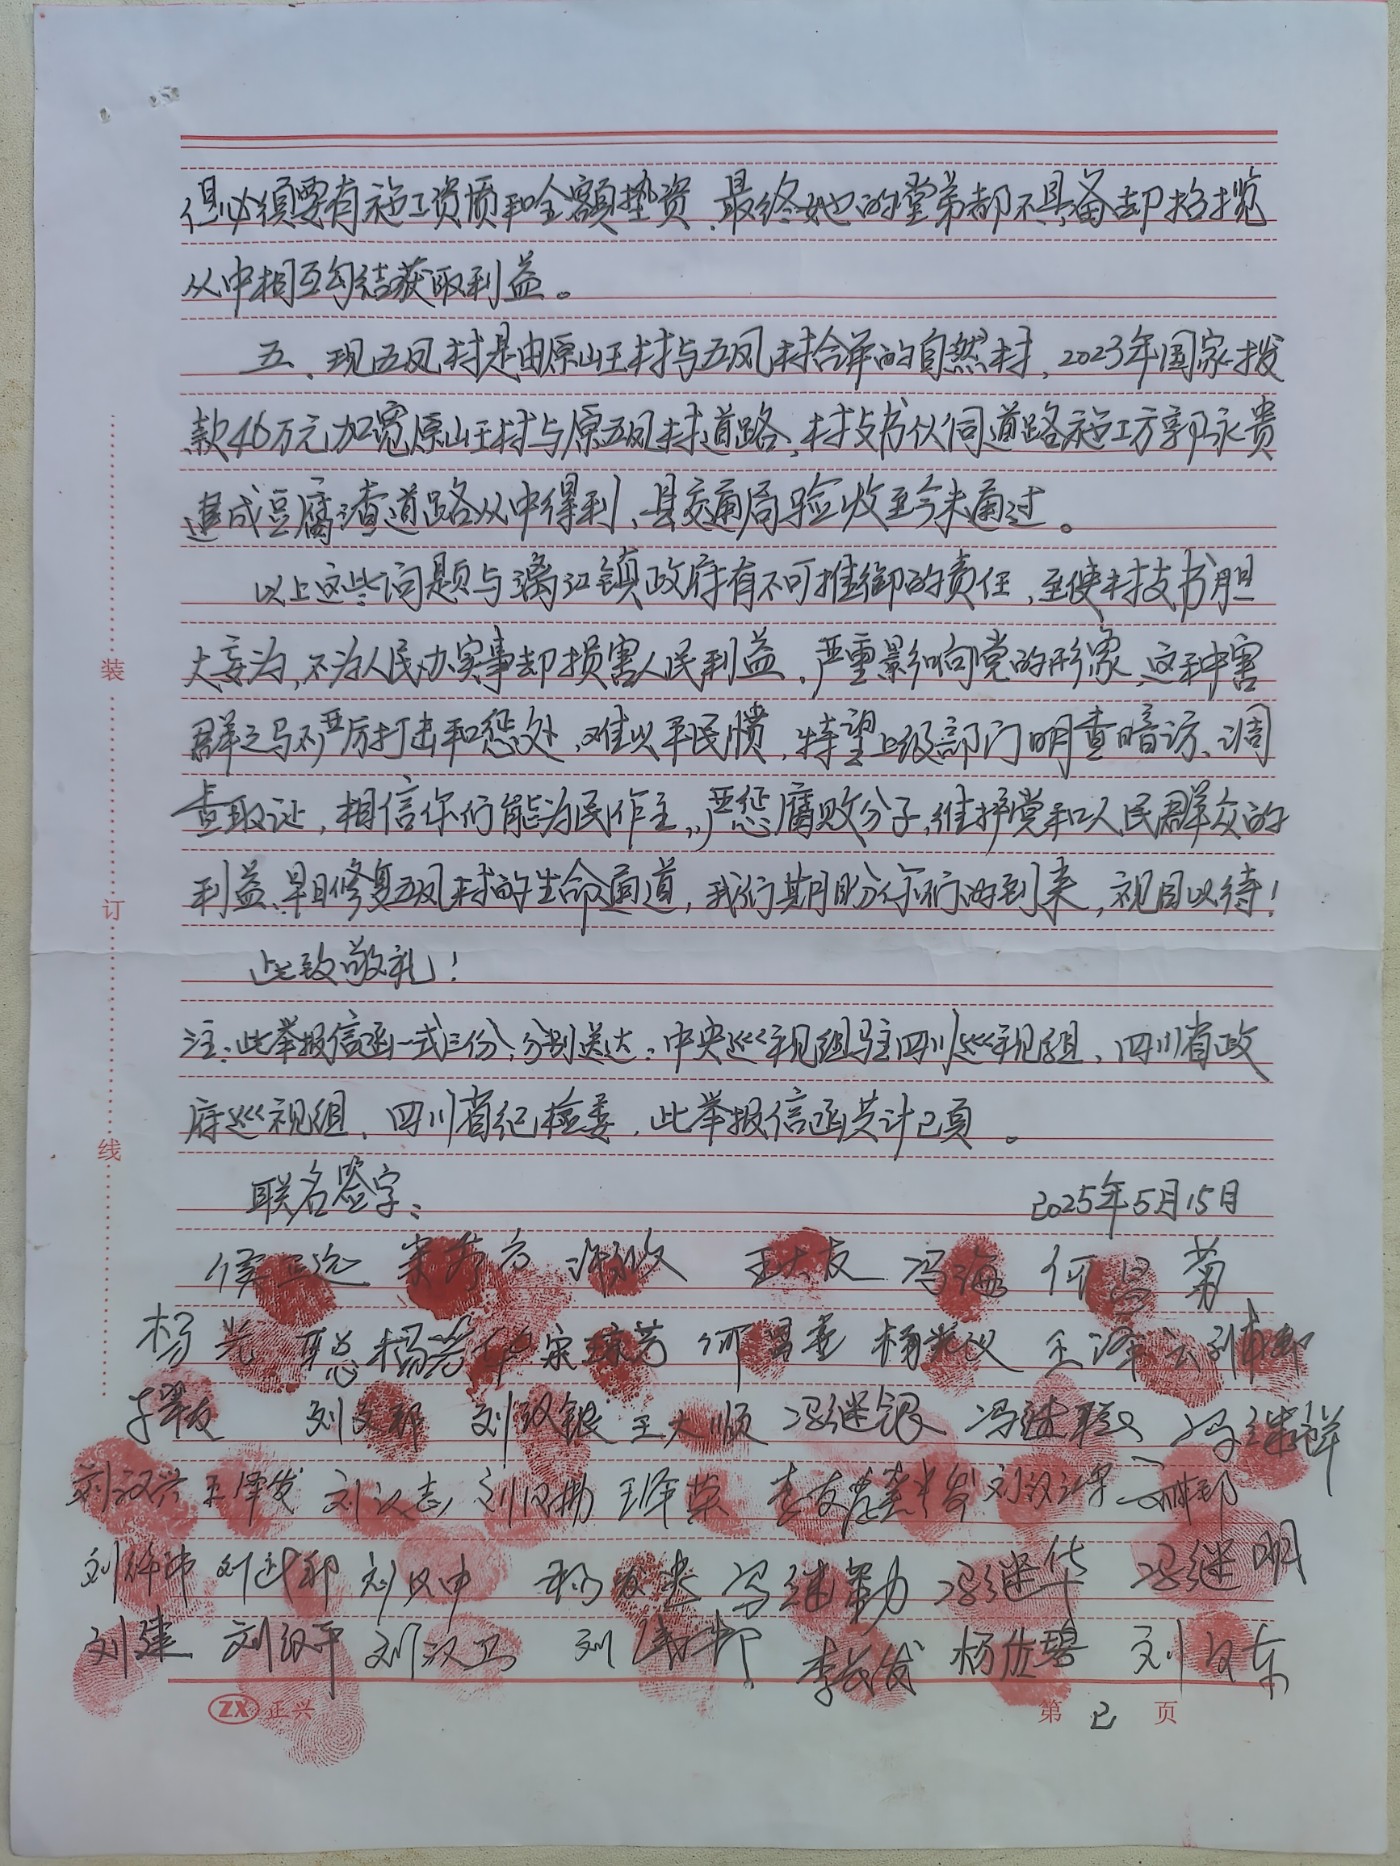 但必须要有施工资质和全额垫资,最终她的堂弟都不具备却招揽
从中相互勾结获取利益。
五、现五凤村是由原山王村与五凤村合并的自然村,2023年国家拨
款46万元加宽原山王村与原五凤村道路,村支书伙同道路施工方郭永贵
建成豆腐渣道路从中得利、县交通局验收至今未通过。
以上这些问题与漓江镇政府有不可推御的责任,至使村支书胆
大妄为,不为人民办实事却损害人民利益,严重影响党的形象,这种害
群之马不严厉打击和惩处,难以平民愤,特望上级部门明查暗访、调
查取证,相信你们能为民作主,严惩腐败分子,维护党和人民群众的
利益、早日修复五凤村的生命通道,我们期盼你们的到来,视目以待!
此致敬礼!
注:此举报信函一式三份,分别送达:中央巡视组驻四川巡视组、四川省政
府巡视组、四川省纪检委,此举报信函共计2页。
联名签字: 2025年5月15日
王大友 冯海 何昌菊
杨光 杨光华 宋琼芳 杨光仪 王泽云
刘文邦 刘汉银 王大顺 冯继银 冯继聪 冯继祥
刘汉兴 王泽发 刘汉志 王泽荣
刘汉中 冯继勤 冯继华 冯继明
刘建 刘汉平 刘汉卫 李长发 杨仕碧 刘汉东
ZX 正兴 第 2 页
装
订
线